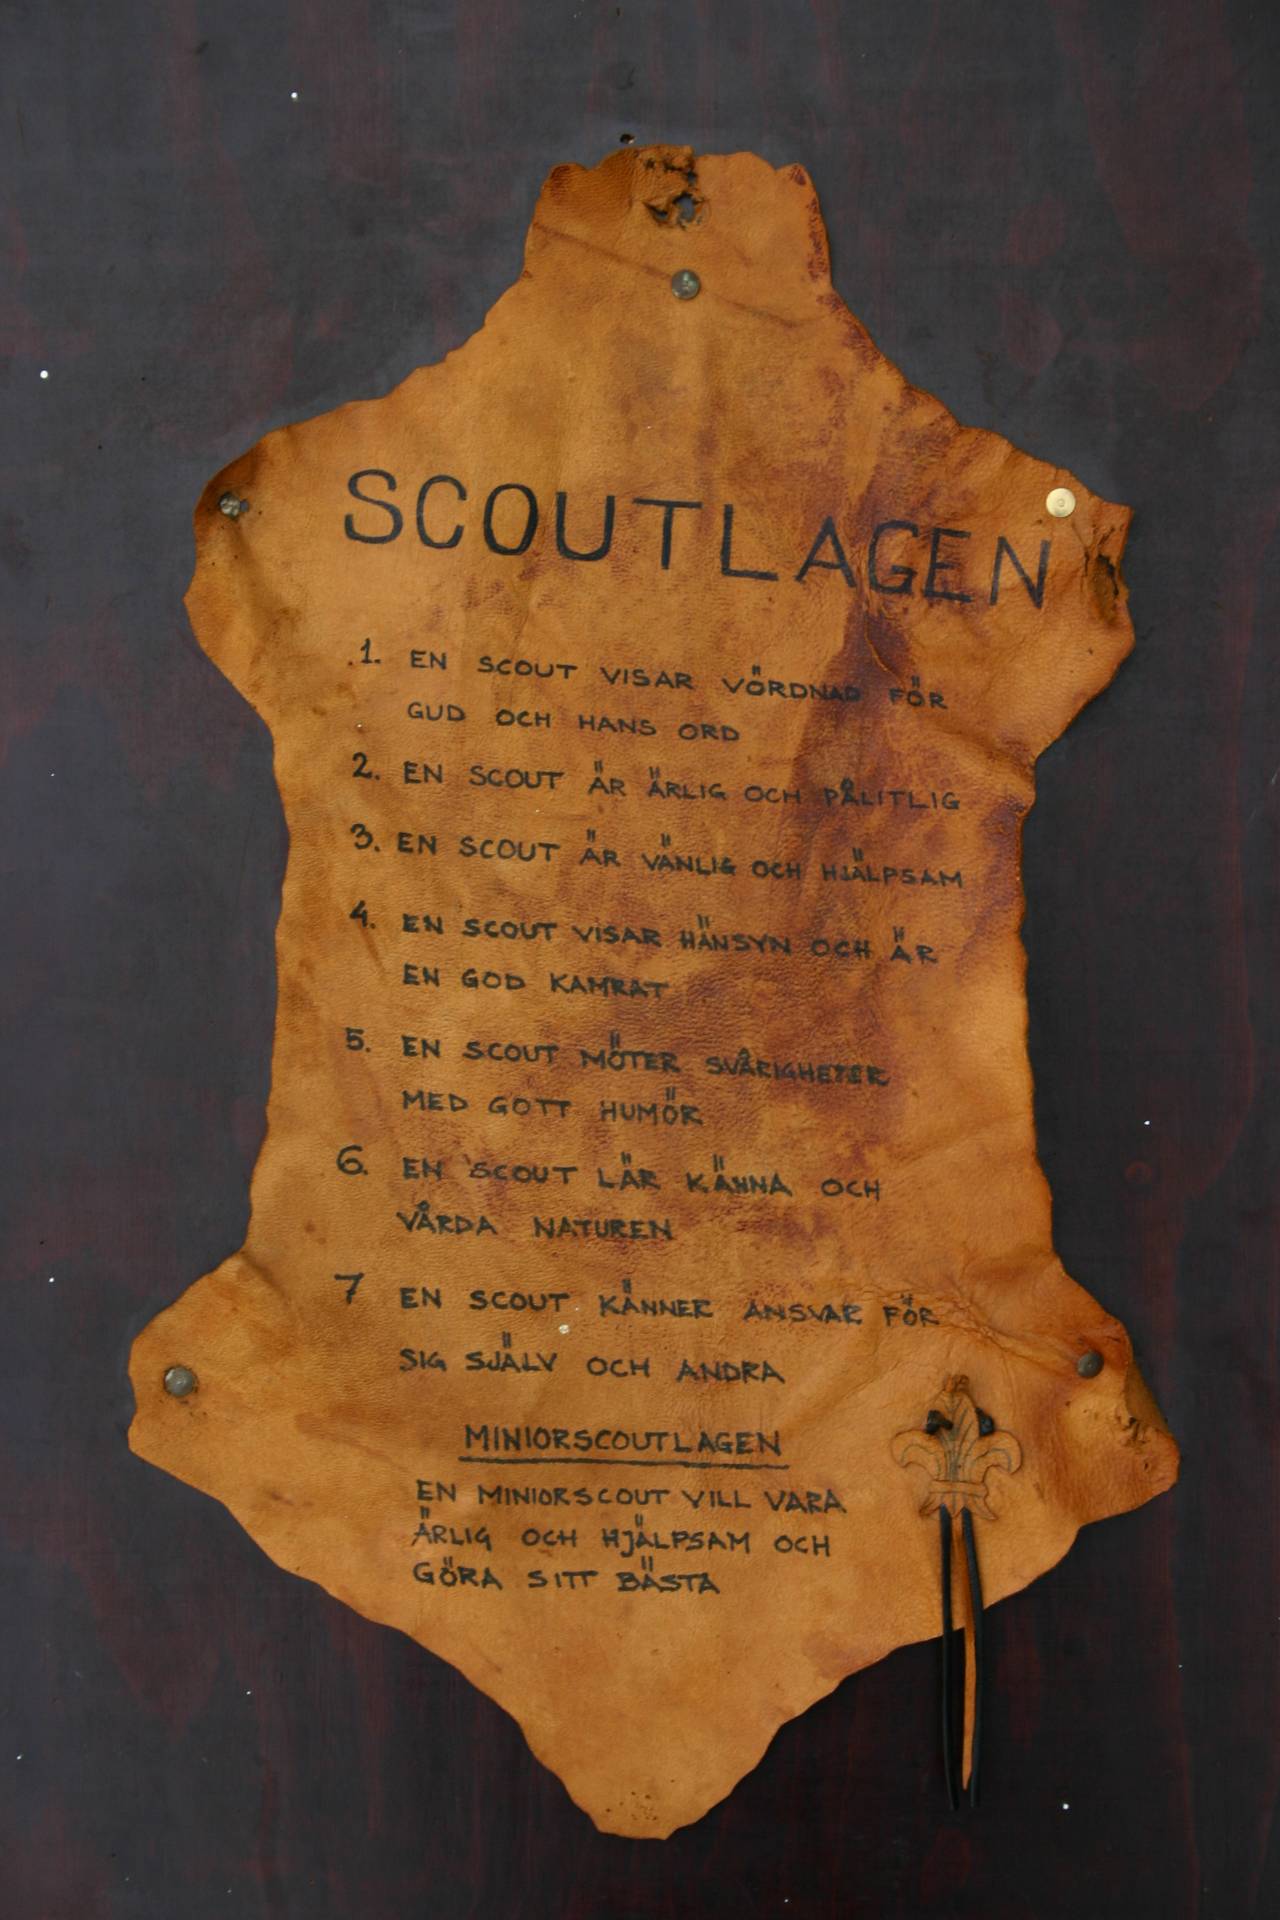 SCOUTLAGEN
1. EN SCOUT VISAR VÖRDNAD FÖR
GUD OCH HANS ORD
2. EN SCOUT ÄR ÄRLIG OCH PÅLITLIG
3. EN SCOUT ÄR VÄNLIG OCH HJÄLPSAM
4. EN SCOUT VISAR HÄNSYN OCH ÄR
EN GOD KAMRAT
5. EN SCOUT MÖTER SVÅRIGHETER
MED GOTT HUMÖR
6. EN SCOUT LÄR KÄNNA OCH
VÅRDA NATUREN
7 EN SCOUT KÄNNER ANSVAR FÖR
SIG SJÄLV OCH ANDRA
MINIORSCOUTLAGEN
EN MINIORSCOUT VILL VARA
ÄRLIG OCH HJÄLPSAM OCH
GÖRA SITT BÄSTA